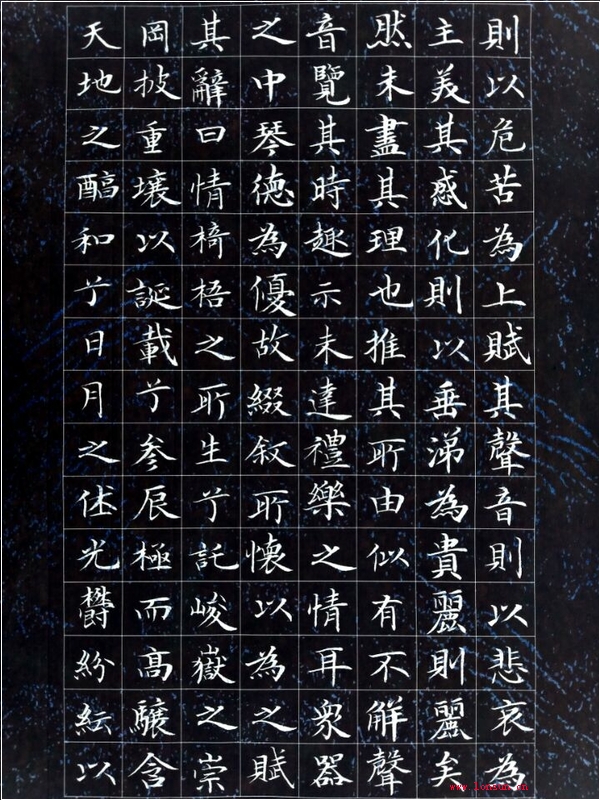 則以危苦為上賦其聲音則以悲哀為
主美其感化則以垂涕為貴麗則麗矣
然未盡其理也推其所由似有不解聲
音覽其時趣示未達禮樂之情耳衆器
之中琴德為優故綴叙所懷以為之賦
其辭曰情椅梧之所生兮託峻嶽之崇
岡披重壤以誕載兮参辰極而高驤含
天地之醇和兮日月之休光鬱紛紜以